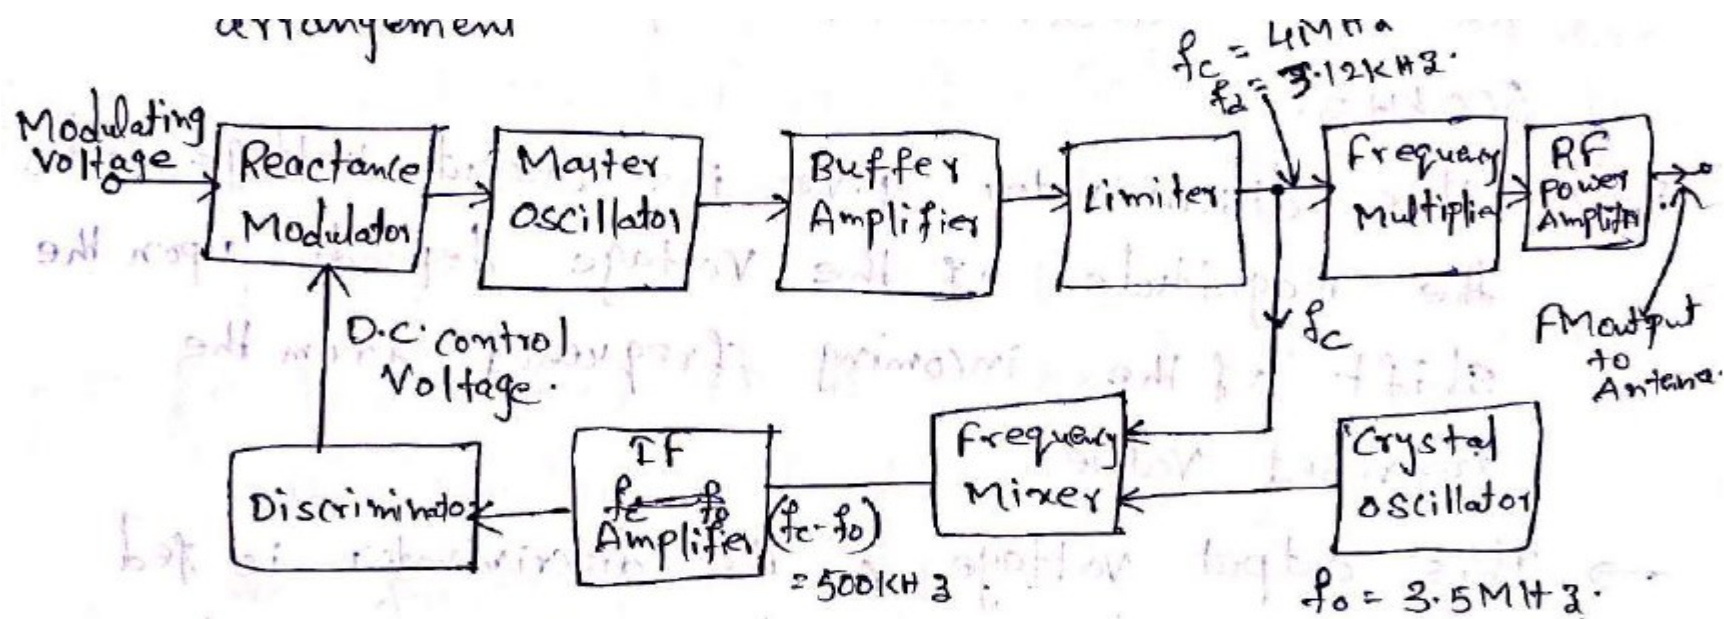 arrangement
fc = 4MHz
fd = 3.12KHz.
Modulating
Voltage
Reactance
Modulator
Master
Oscillator
Buffer
Amplifier
Limiter
Frequency
Multiplie
RF
Power
Amplifi
fc
FM output
to
Antena.
D.C. control
Voltage.
Discriminator
IF
Amplifier
(fc-fo)
= 500KHz.
Frequency
Mixer
Crystal
Oscillator
fo = 3.5MHz.